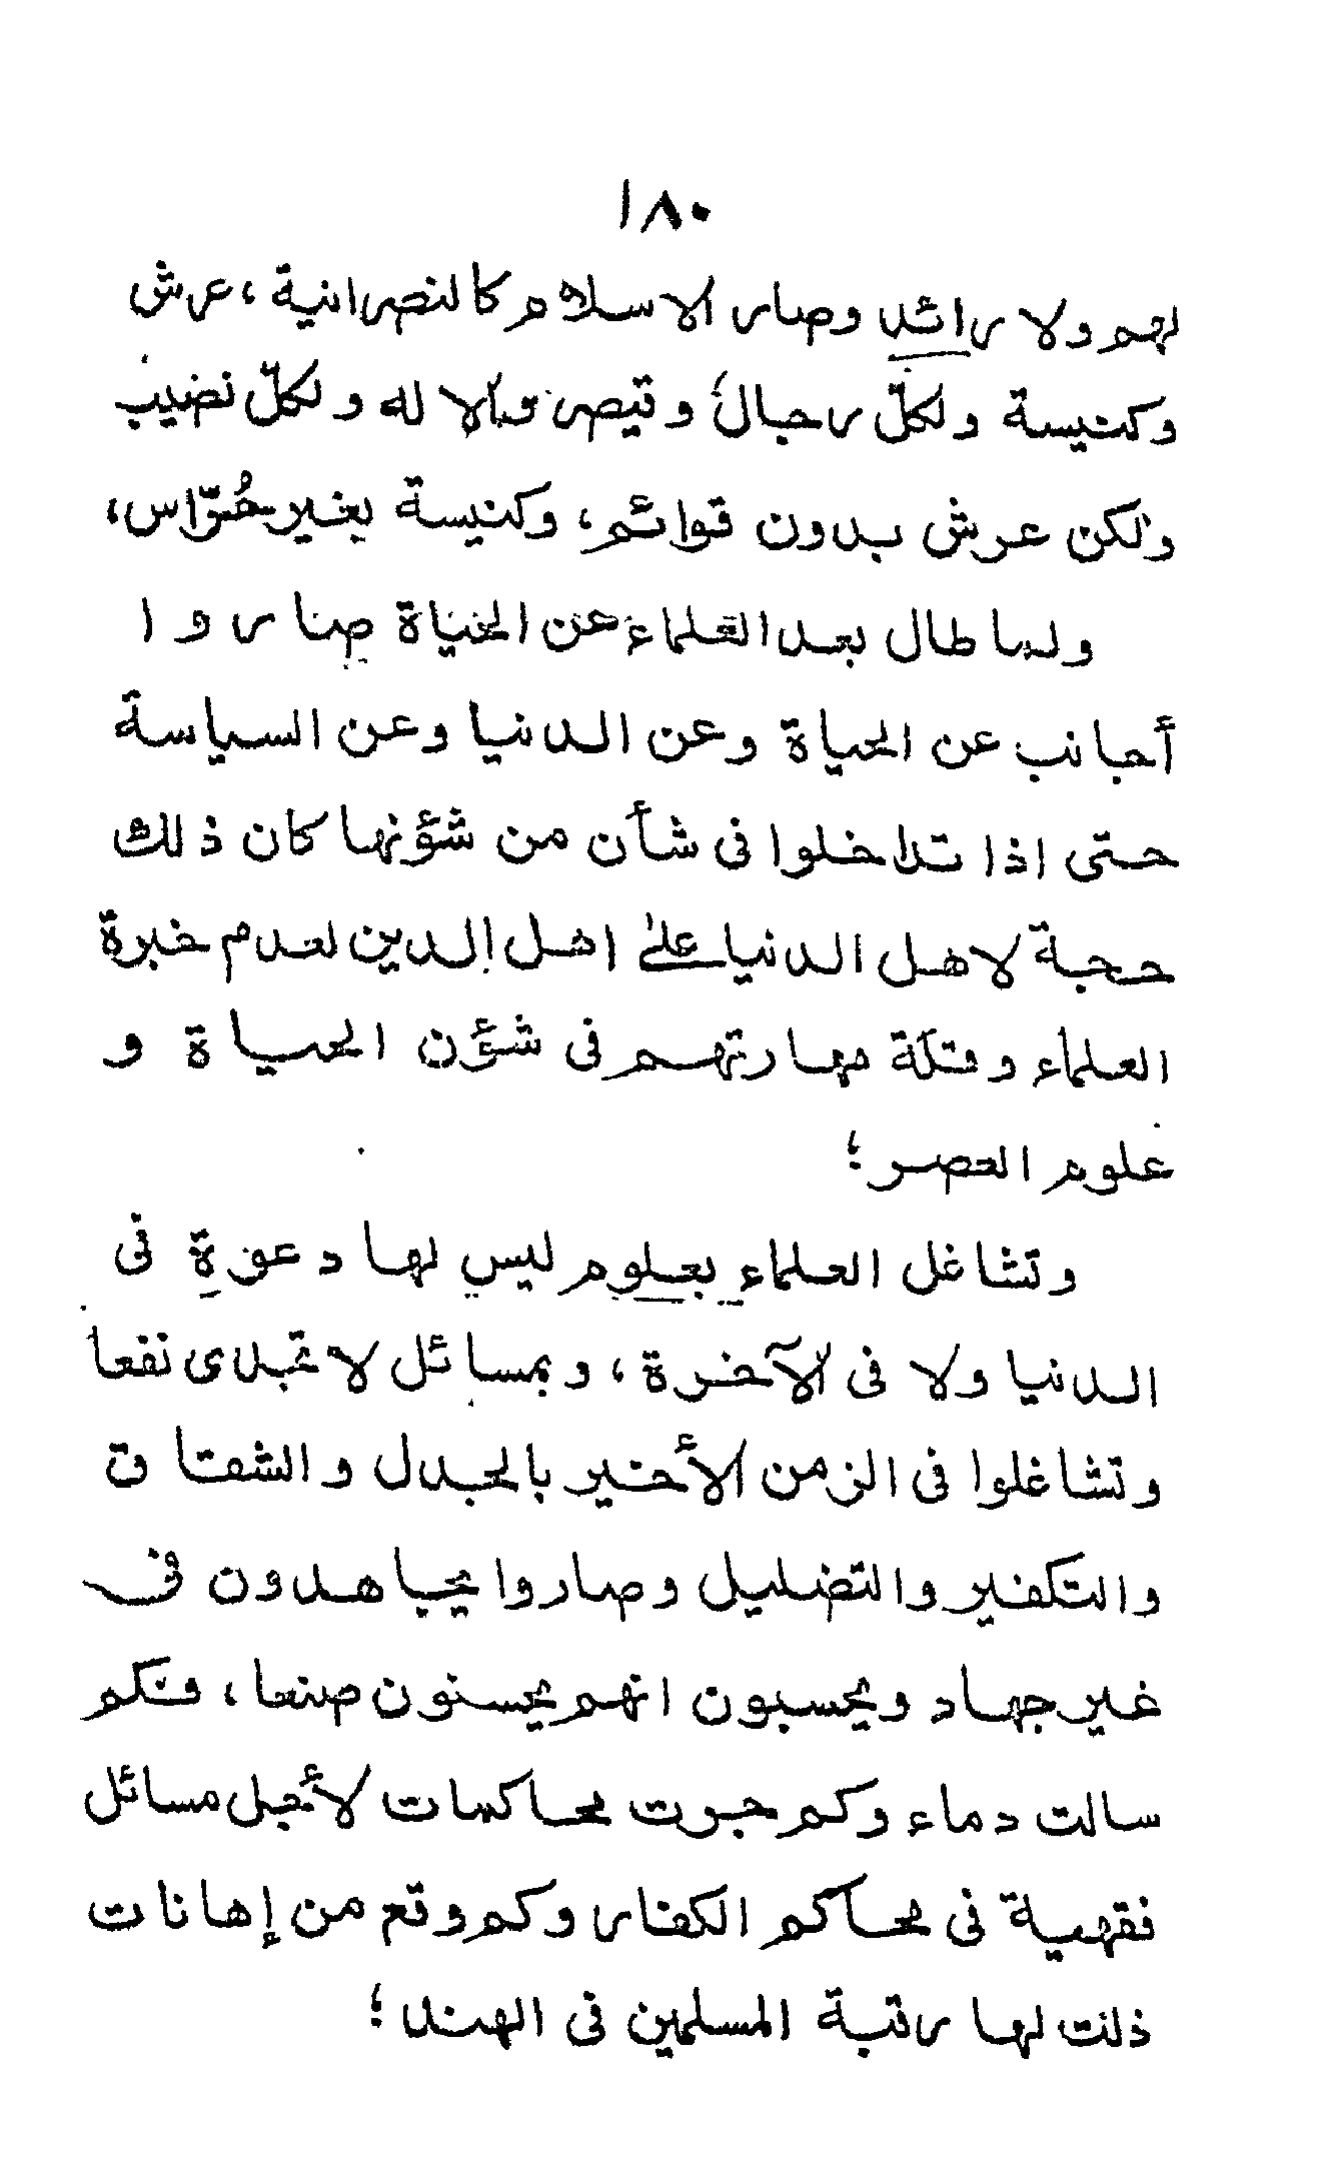 ١٨٠
لهم ولا رائد وصار الاسلام كالنصرانية ، عرش
وكنيسة ولكلّ رجال؛ وقيصر وإلاله ولكلّ نصيب
ولكن عرش بدون قوائم، وكنيسة بغير حُرّاس،
ولما طال بعد العلماء عن الحياة صاروا
أجانب عن الحياة وعن الدنيا وعن السياسة
حتى اذا تداخلوا فى شأن من شؤنها كان ذلك
حجة لاهل الدنيا على اهل الدين لعدم خبرة
العلماء وقلّة مهارتهم فى شؤن الحياة و
علوم العصر؛
وتشاغل العلماء بعلوم ليس لها دعوة فى
الدنيا ولا فى الآخرة ، وبمسائل لا تجدى نفعا
وتشاغلوا فى الزمن الأخير بالجدل والشقاق
والتكفير والتضليل وصاروا يجاهدون فى
غير جهاد ويحسبون انهم يحسنون صنعا ، فكم
سالت دماء وكم جرت محاكمات لأجل مسائل
فقهية فى محاكم الكفار وكم وقع من إهانات
ذلت لها رتبة المسلمين فى الهند؛